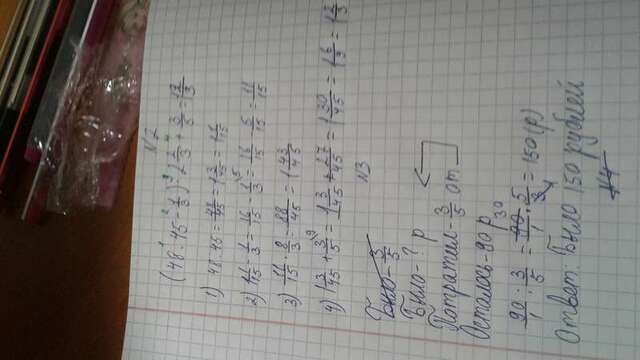 N2
(48 : 45 - 1/3) · 2 2/3 + 3/5 = 1 2/3
1) 48 : 45 = 48/45 = 1 3/45 = 1 1/15
2) 1 1/15 - 1/3 = 16/15 - 1/3 = 16/15 - 5/15 = 11/15
3) 11/15 · 8/3 = 88/45 = 1 43/45
4) 1 3/45 + 3/5 = 1 3/45 + 27/45 = 1 30/45 = 1 6/9 = 1 2/3
N3
Было - 3/5
Было - ? р
Потратил - 3/5 от
Осталось - 90 р
90/1 : 3/5 = 90/1 · 5/3 = 150 (р)
Ответ: Было 150 рублей
N4